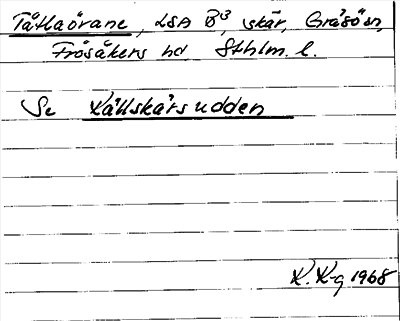 Tåtlaörane, LSA B³, skär, Gräsön,
Frösåkers hd Sthlm. l.
Se Kållskärsudden
K. K-g 1968